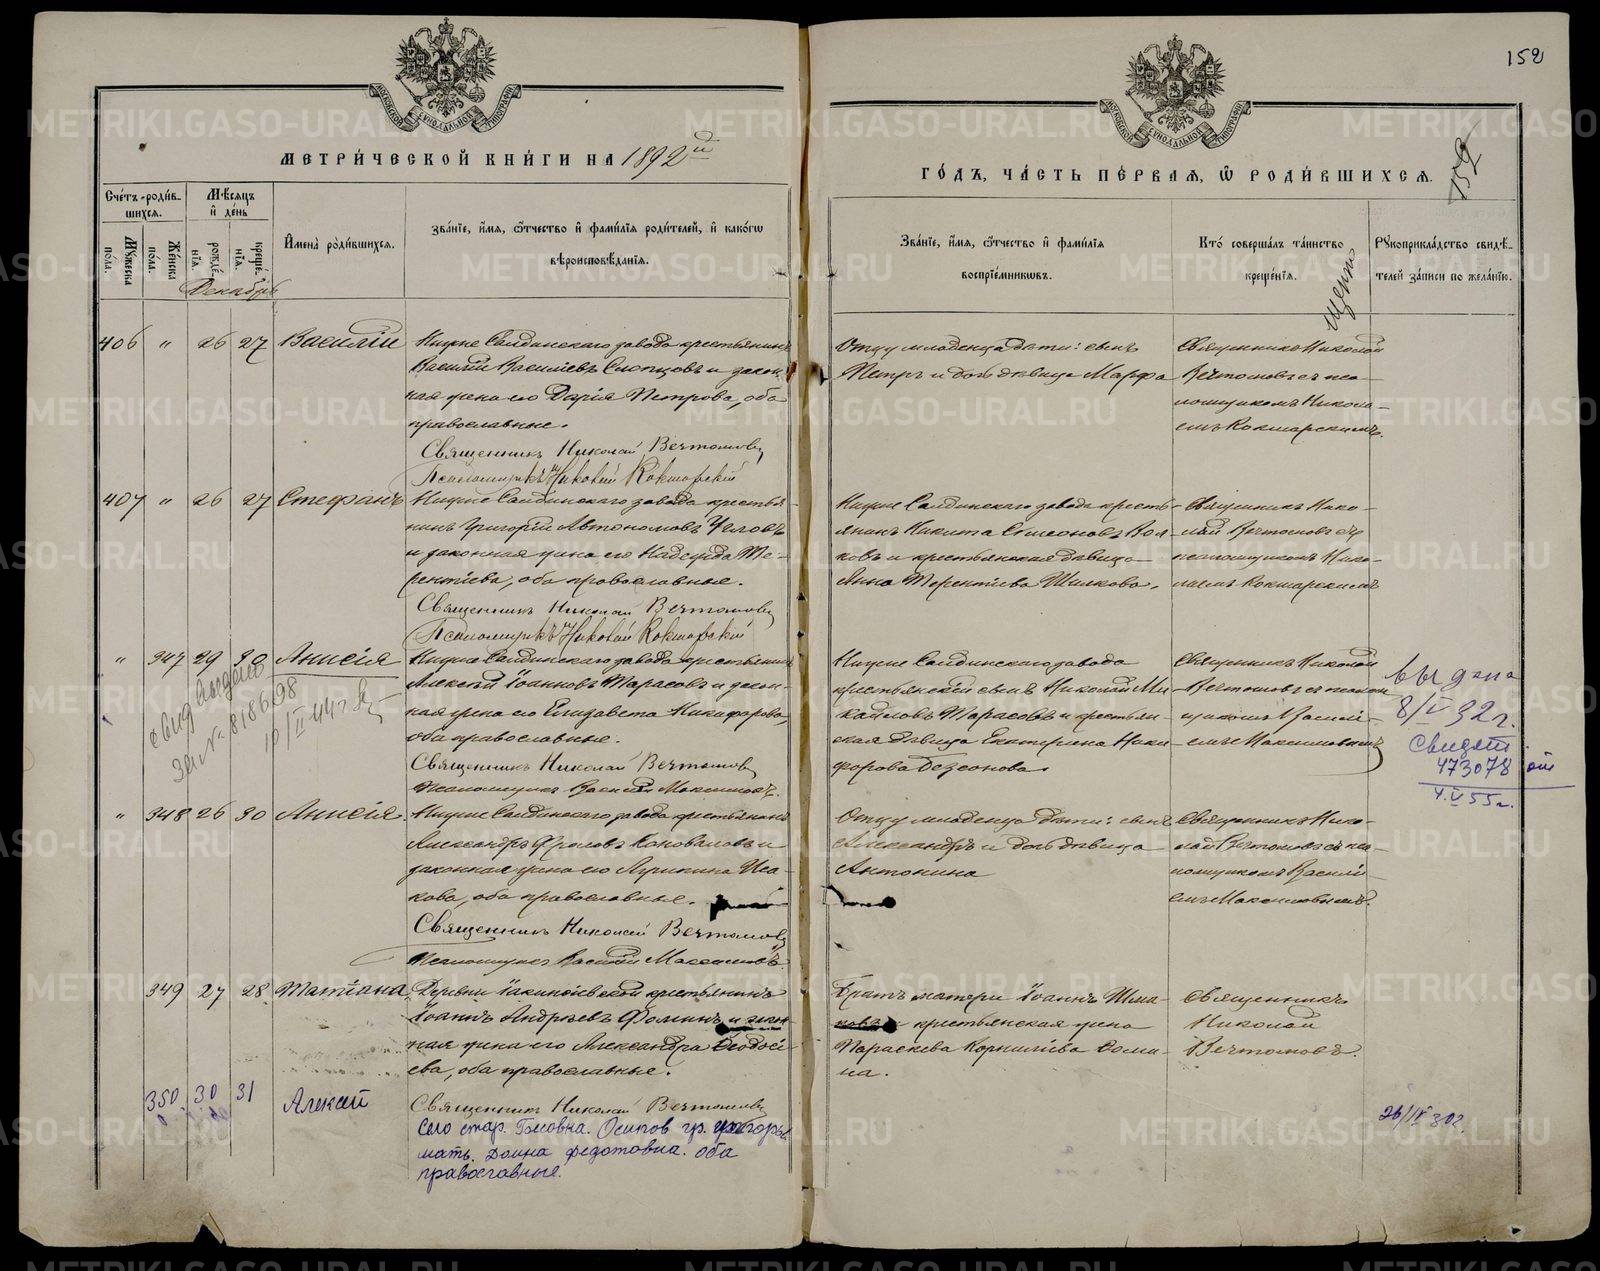 152
МЕТРИ́ЧЕСКОЙ КНИ́ГИ НА 1892й
ГО́ДЪ, ЧА́СТЬ ПЕ́РВАЯ, Ѡ РОДИ́ВШИХСЯ.
152
Сче́тъ роди́в-
шихся.
Мѣ́сяцъ
и҆ де́нь
Мꙋ́жеска
по́ла.
Же́нска
по́ла.
рожде́-
нїя.
креще́-
нїя.
И҆мена̀ роди́вшихся.
Зва́нїе, и҆́мя, ѻ҆́тчество и҆ фами́лїя роди́телей, и҆ како́гѡ
вѣроисповѣ́данїя.
Зва́нїе, и҆́мя, ѻ҆́тчество и҆ фами́лїя
воспрїе́мникѡвъ.
Кто̀ соверша́лъ та́инство
креще́нїя.
Рꙋкоприкла́дство свидѣ́-
телей за́писи по жела́нїю.
Декабрь
406 " 26 27 Василій
Нижне Салдинскаго завода крестьянинъ
Василій Васильевъ Скопцовъ и закон-
ная жена его Дарія Петрова, оба
православные.
Священникъ Николай Вечтомовъ
Псаломщикъ Николай Кокшарскій
Отцу младенца дѣти: сынъ
Петръ и дочь дѣвица Марфа
Священникъ Николай
Вечтомовъ съ пса-
ломщикомъ Никола-
емъ Кокшарскимъ.
407 " 26 27 Стефанъ
Нижне Салдинскаго завода крестья-
нинъ Григорій Автономовъ
и законная жена его Надежда Те-
рентіева, оба православные.
Священникъ Николай Вечтомовъ
Псаломщикъ Николай Кокшарскій
Нижне Салдинскаго завода кресть-
янинъ Никита Симеоновъ Вол-
ковъ и крестьянская дѣвица
Анна Терентіева
Священникъ Нико-
лай Вечтомовъ съ
псаломщикомъ Нико-
лаемъ Кокшарскимъ
" 347 29 30 Анисія
Нижне Салдинскаго завода крестьянинъ
Алексѣй Іоанновъ Тарасовъ и закон-
ная жена его Елизавета Никифорова,
оба православные.
Священникъ Николай Вечтомовъ
Псаломщикъ Василій Максимовъ.
Нижне Салдинскаго завода
крестьянскій сынъ Николай Ми-
хаиловъ Тарасовъ и крестьян-
ская дѣвица Екатерина Ники-
форова
Священникъ Николай
Вечтомовъ съ псалом-
щикомъ Василі-
емъ
выдана
8/V 32 г.
Свидет.
473078
4.V 55 г.
свид выдано
за № 818698
10/II 44 г
" 348 26 30 Анисія.
Нижне Салдинскаго завода крестьянинъ
Александръ Коноваловъ и
законная жена его Иса-
кова, оба православные.
Священникъ Николай Вечтомовъ
Псаломщикъ Василій
Отцу младенца дѣти: сынъ
Александръ и дочь дѣвица
Антонина
Священникъ Нико-
лай Вечтомовъ съ пса-
ломщикомъ Василі-
емъ
349 27 28 Татіана
Деревни Іакинѳіевской крестьянинъ
Іоаннъ Андреевъ Ѳоминъ и закон-
ная жена его Александра Ѳеодосі-
ева, оба православные.
Священникъ Николай Вечтомовъ
Братъ матери Іоаннъ
крестьянская жена
Параскева Корниліева Ѳоми-
на.
Священникъ
Николай
Вечтомовъ.
350 30 31 Алексей
Село стар. Осипов гр.
мать. Домна Федотовна. оба
православные.
26/IV 30 г.
METRIKI.GASO-URAL.RU